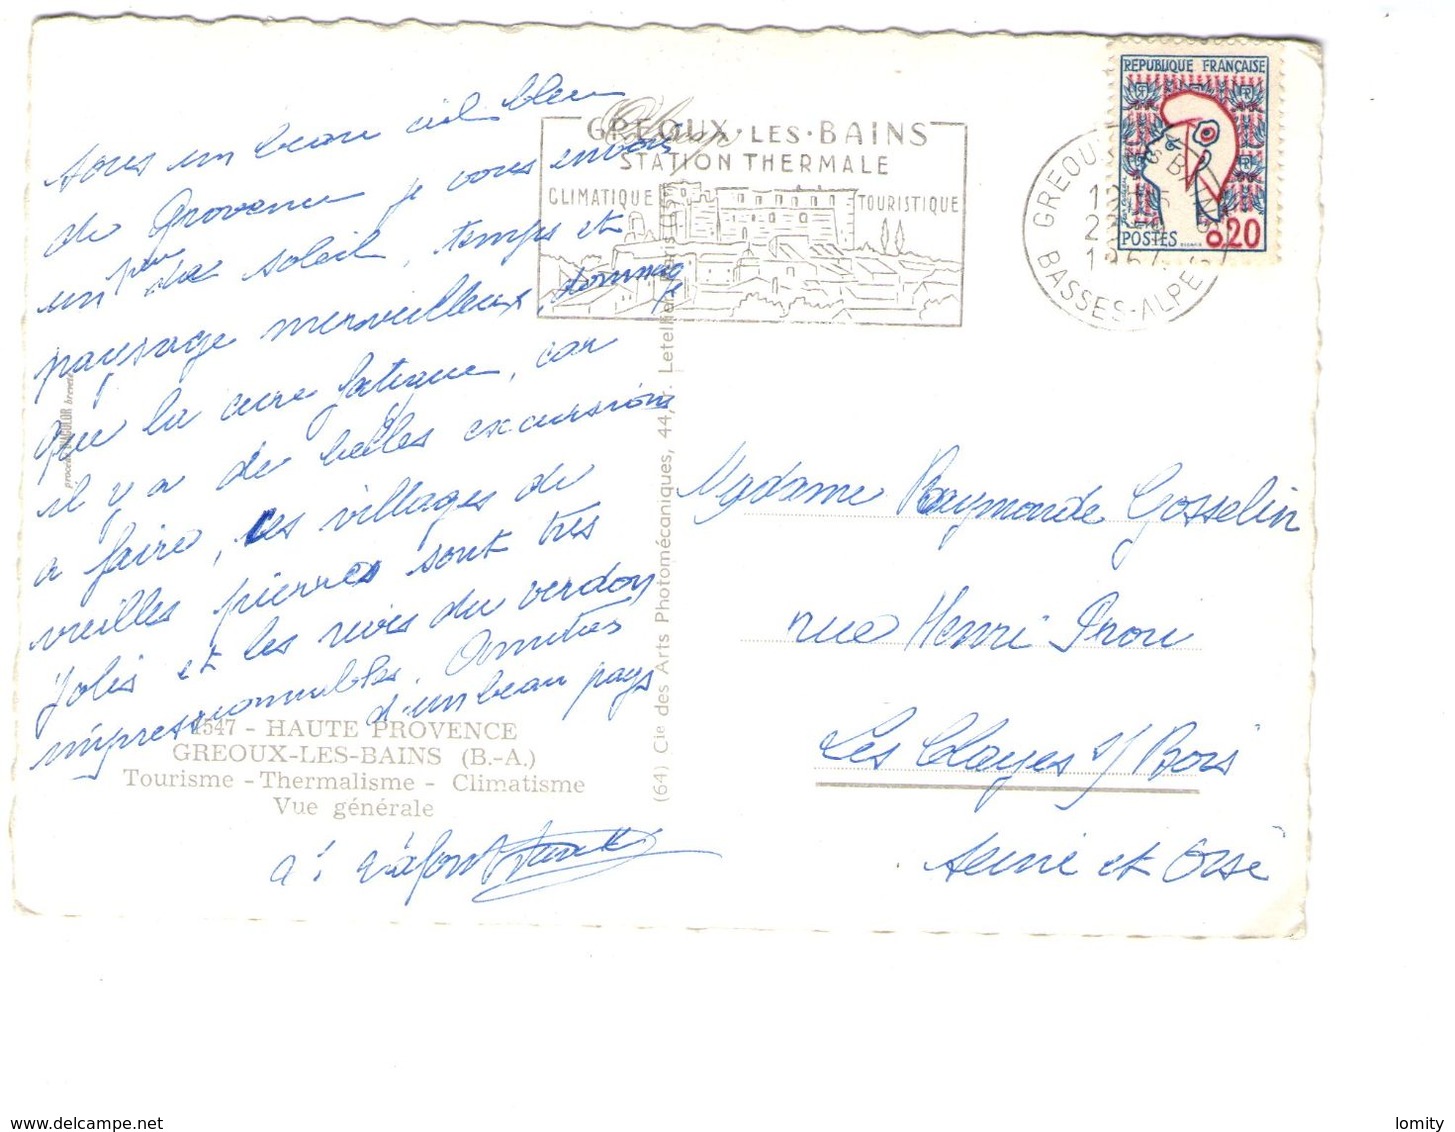 sous un beau ciel bleu
de Provence je vous envois
un peu du soleil, temps et
paysage merveilleux, dommage
que la cure fatigue, car
il y a de belles excursions
a faire, les villages de
vieilles pierres sont très
jolis et les rives du verdon
impressionnables. Amitiés
d'un beau pays
1547 - HAUTE PROVENCE
GREOUX-LES-BAINS (B.-A.)
Tourisme - Thermalisme - Climatisme
Vue générale
(64) Cie des Arts Photomécaniques, 44, r. Letellier, Paris (15e)
GREOUX·LES·BAINS
STATION THERMALE
CLIMATIQUE TOURISTIQUE
GREOUX LES BAINS
BASSES-ALPES
REPUBLIQUE FRANÇAISE
POSTES 0,20
Madame Raymonde Gosselin
rue Henri Prou
Les Clayes s/ Bois
Seine et Oise
delcampe.net
lomity